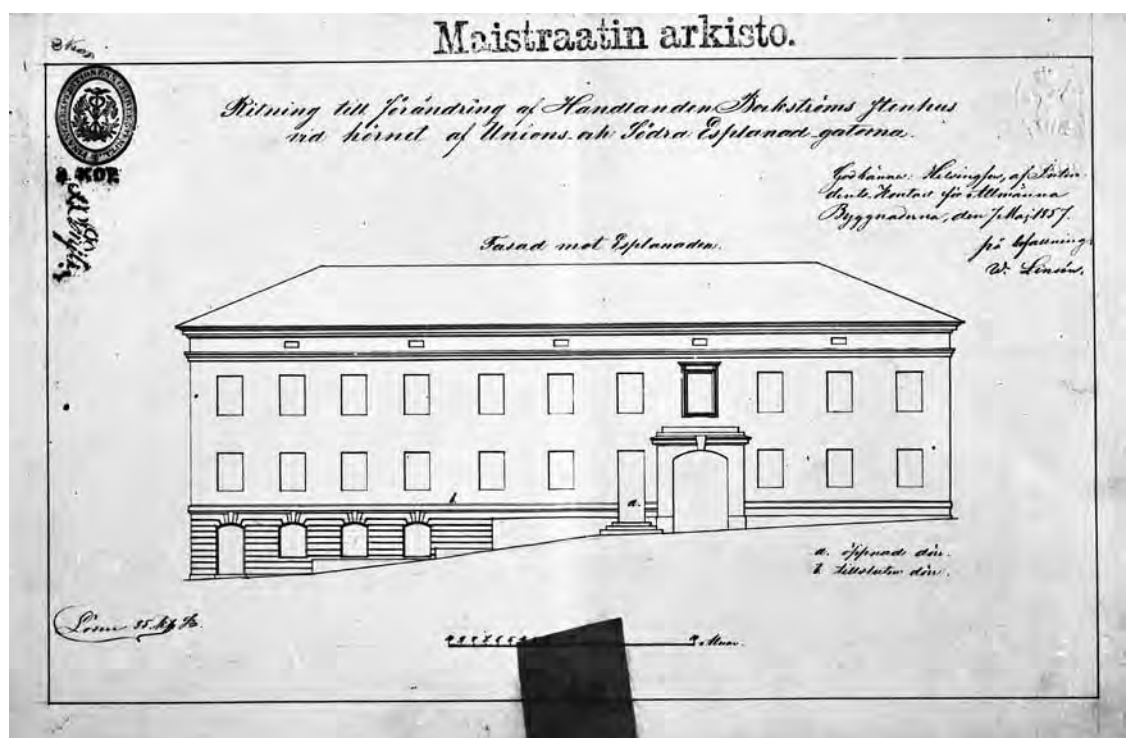 Maistraatin arkisto.
Ritning till förändring af Handlanden Borkströms Stenhus
vid hörnet af Unions och Södra Esplanad-gatorna.
8. KOP.
Godkännes: Helsingfors, af
Kontor för Allmänna
Byggnaderna, den 7 Maj 1857.
på befallning:
Fasad mot Esplanaden.
b
a.
a. öppnad dörr.
b tillsluten dörr.
Lösen 35. kop. S.